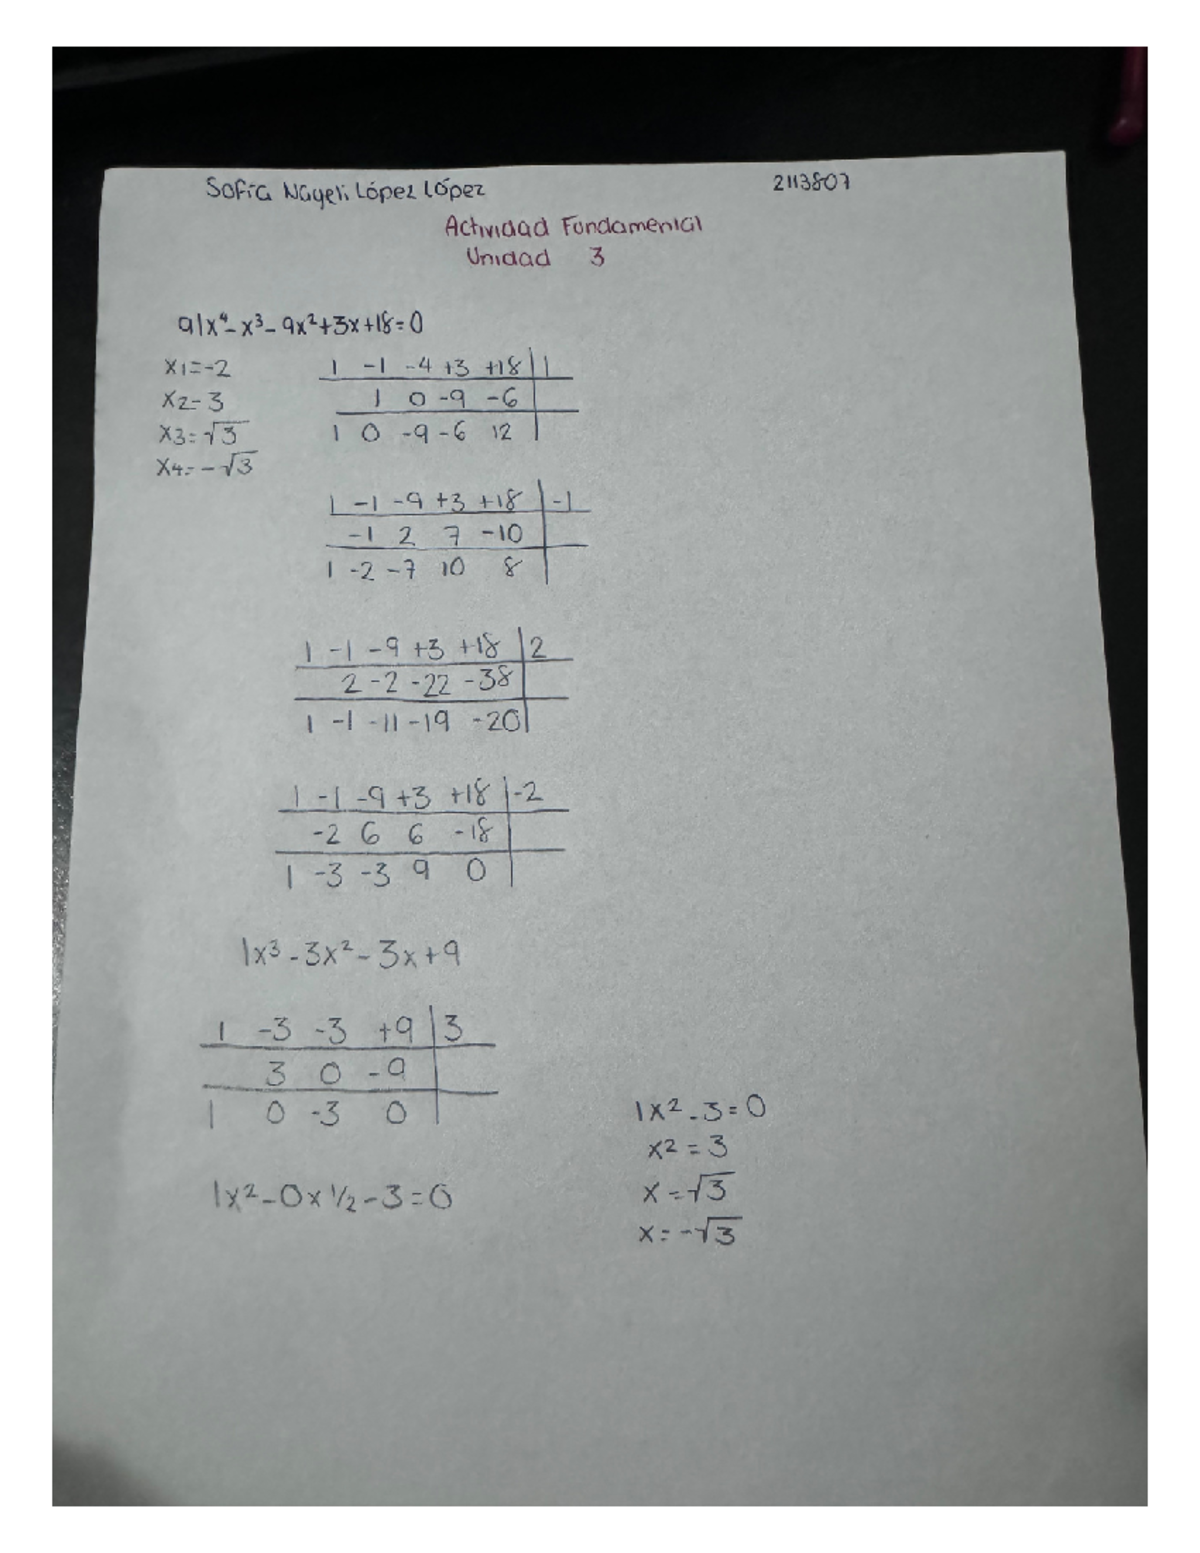 Sofía Nayeli López López 2113807
Actividad Fundamental
Unidad 3
a) x⁴-x³-9x²+3x+18=0
x1=-2
x2=3
x3=√3
x4=-√3
1 -1 -4 +3 +18 | 1
1 0 -9 -6
1 0 -9 -6 12
1 -1 -9 +3 +18 | -1
-1 2 7 -10
1 -2 -7 10 8
1 -1 -9 +3 +18 | 2
2 -2 -22 -38
1 -1 -11 -19 -20
1 -1 -9 +3 +18 | -2
-2 6 6 -18
1 -3 -3 9 0
1x³-3x²-3x+9
1 -3 -3 +9 | 3
3 0 -9
1 0 -3 0
1x²-0x½-3=0
1x²-3=0
x²=3
x=√3
x=-√3